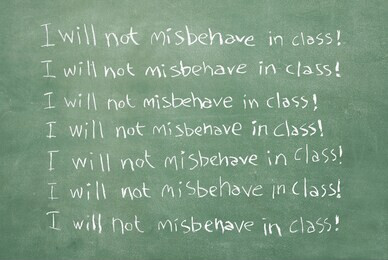 I will not misbehave in class!
I will not misbehave in class!
I will not misbehave in class!
I will not misbehave in class!
I will not misbehave in class!
I will not misbehave in class!
I will not misbehave in class!